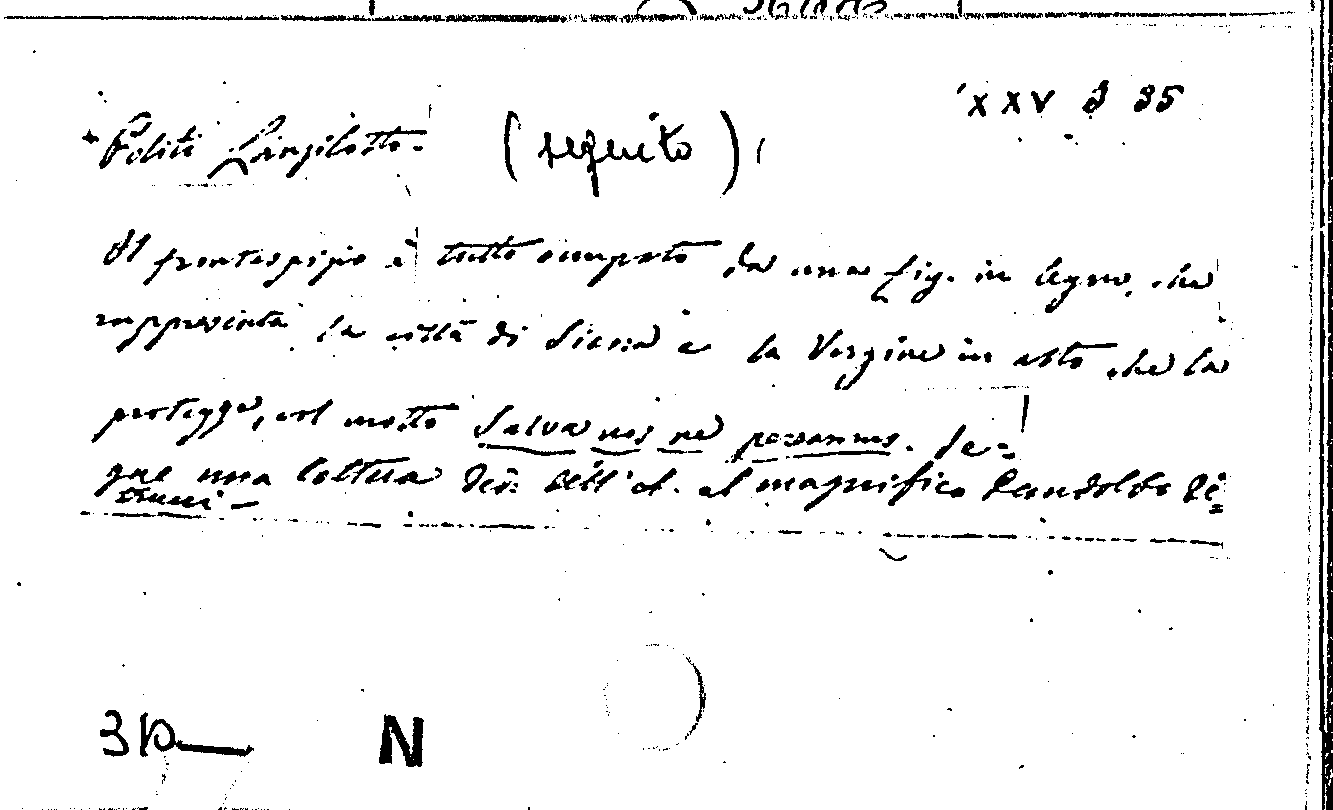 XXV J 35
Politi Lanzilotto. (seguito)
Il frontespizio è tutto occupato da una fig. in legno, che
rappresenta la città di Siena e la Vergine in alto che la
protegge, col motto Salva nos ne pereamus. Se=
gue una lettera ded. dell'A. al magnifico Pandolfo Pe=
trucci -
N